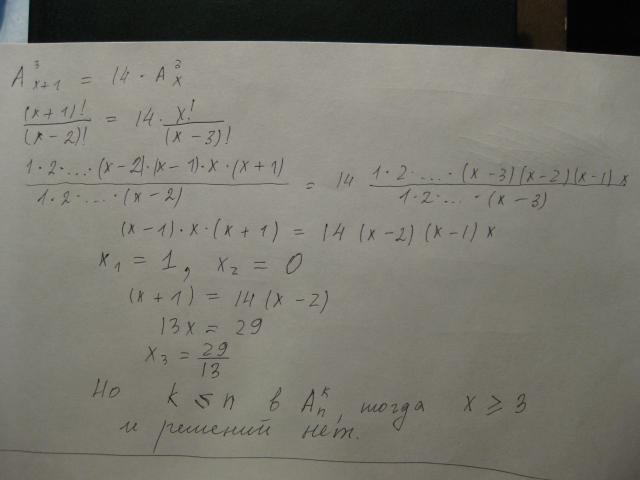 A³ₓ₊₁ = 14 · A³ₓ
(x+1)!/(x-2)! = 14 · x!/(x-3)!
1·2·...·(x-2)·(x-1)·x·(x+1)/1·2·...·(x-2) = 14 1·2·...·(x-3)(x-2)(x-1)x/1·2·...·(x-3)
(x-1)·x·(x+1) = 14(x-2)(x-1)x
x₁ = 1, x₂ = 0
(x+1) = 14(x-2)
13x = 29
x₃ = 29/13
Но k ≤ n в Aₙᵏ, тогда x ≥ 3
и решений нет.